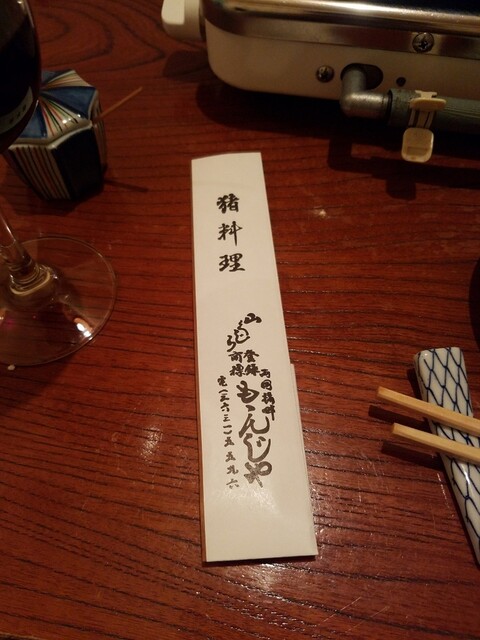 猪料理
山
登録
商標
両国橋畔
もゝんじや
電(三六三一)五五九六